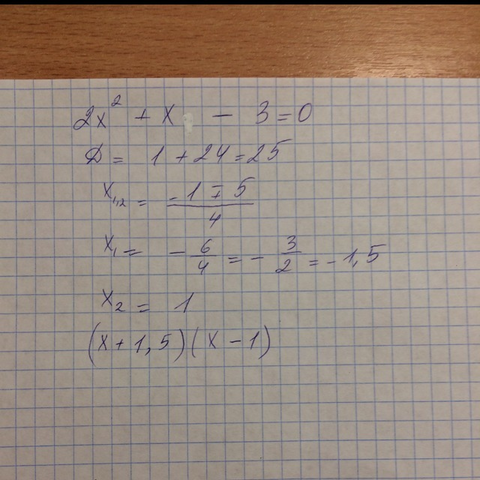 2x² + x - 3 = 0
D = 1 + 24 = 25
x₁,₂ = (-1 ∓ 5)/4
x₁ = -6/4 = -3/2 = -1,5
x₂ = 1
(x + 1,5)(x - 1)